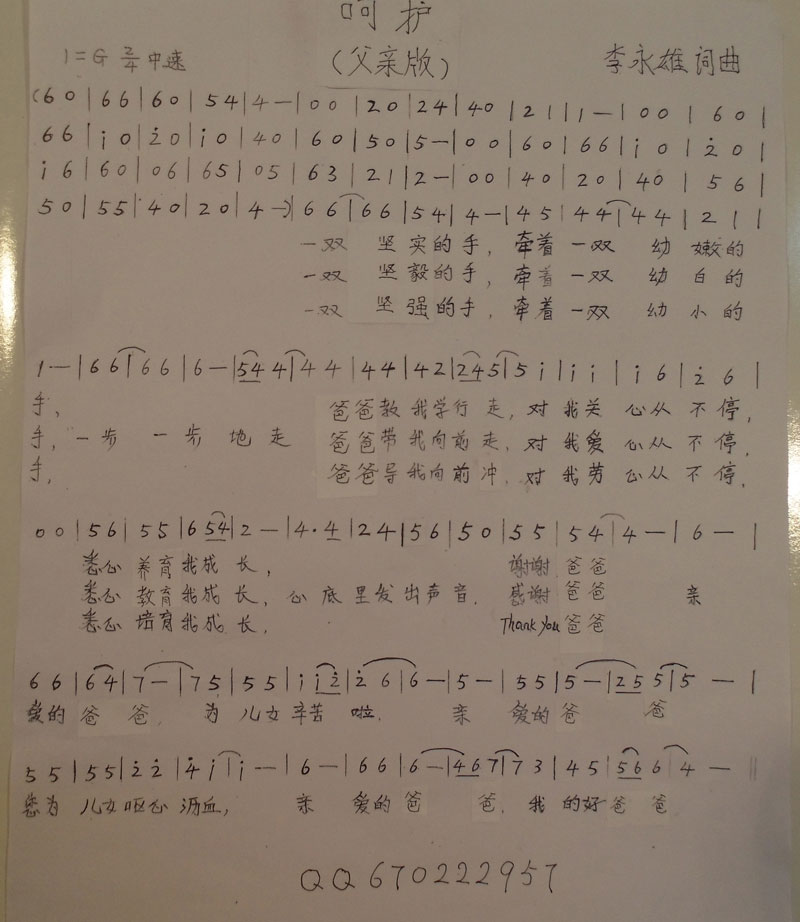 呵护
(父亲版)
1=G 2/4 中速
李永雄 词曲
(6 0 | 6 6 | 6 0 | 5 4 | 4 — | 0 0 | 2 0 | 2 4 | 4 0 | 2 1 | 1 — | 0 0 | 6 0 |
6 6 | i 0 | 2̇ 0 | i 0 | 4 0 | 6 0 | 5 0 | 5 — | 0 0 | 6 0 | 6 6 | i 0 | 2̇ 0 |
i 6 | 6 0 | 0 6 | 6 5 | 0 5 | 6 3 | 2 1 | 2 — | 0 0 | 4 0 | 2 0 | 4 0 | 5 6 |
5 0 | 5 5 | 4 0 | 2 0 | 4 —) | 6 6 | 6 6 | 5 4 | 4 — | 4 5 | 4 4 | 4 4 | 2 1 |
一双 坚实的手, 牵着一双 幼 嫩的
一双 坚毅的手, 牵着一双 幼 白的
一双 坚强的手, 牵着一双 幼 小的
1 — | 6 6 | 6 6 | 6 — | 5 4 4 | 4 4 | 4 4 | 4 2 | 2 4 5 | 5 i | i i | i 6 | 2̇ 6 |
手, 爸爸教我学行走, 对我关 心从 不停,
手, 一步 一步地走 爸爸带我向前走, 对我爱 心从 不停,
手, 爸爸导我向前冲, 对我劳 心从 不停,
0 0 | 5 6 | 5 5 | 6 5 4 | 2 — | 4 · 4 | 2 4 | 5 6 | 5 0 | 5 5 | 5 4 | 4 — | 6 — |
悉心 养育我成长, 谢谢 爸爸
悉心 教育我成长, 心底里发出声音, 感谢 爸爸 亲
悉心 培育我成长, Thank you 爸爸
6 6 | 6 4 | 7 — | 7 5 | 5 5 | i i 2̇ | 2̇ 6 | 6 — | 5 — | 5 5 | 5 — | 2 5 5 | 5 — |
爱的 爸 爸, 为 儿女辛苦 啦, 亲 爱的 爸 爸
5 5 | 5 5 | 2̇ 2̇ | 4̇ i | i — | 6 — | 6 6 | 6 — | 4 6 7 | 7 3 | 4 5 | 5 6 6 | 4 — ‖
您为 儿女呕心 沥血, 亲 爱的 爸 爸, 我 的好 爸 爸
QQ670222957